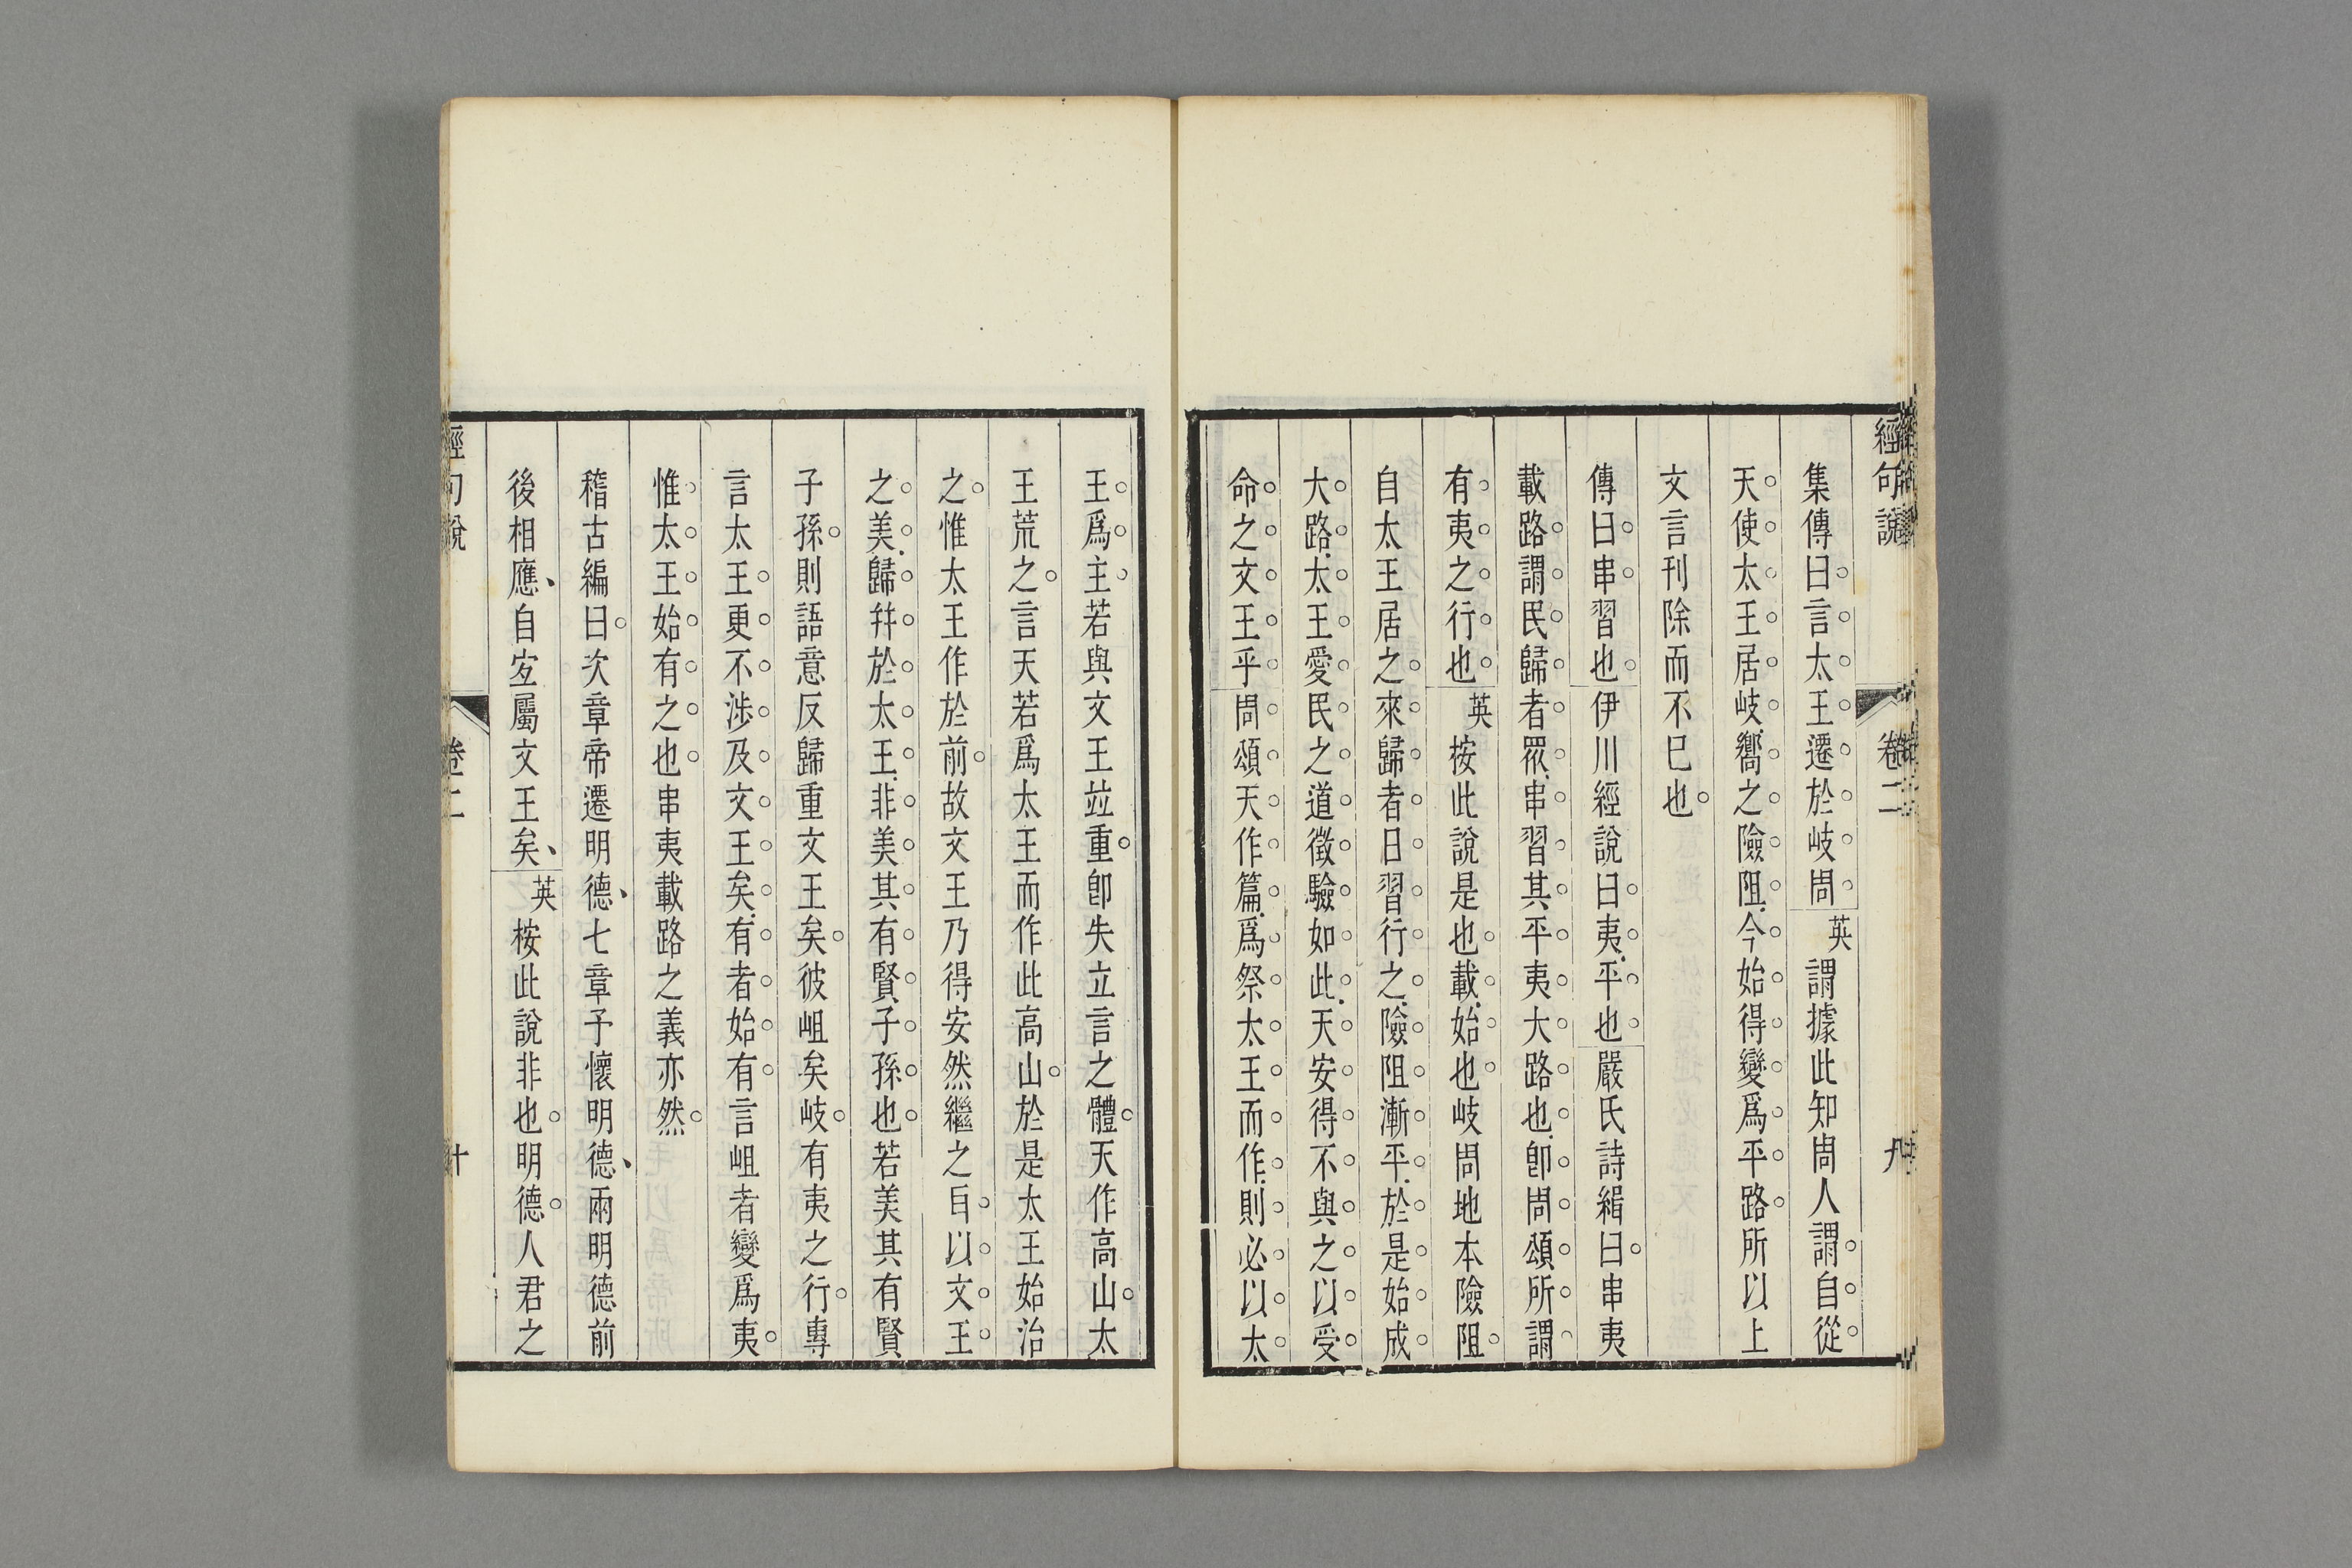 經句說 卷二 九
集傳曰言太王遷於岐周英謂據此知周人謂自從
天使太王居岐嚮之險阻今始得變爲平路所以上
文言刊除而不已也
傳曰串習也伊川經說曰夷平也嚴氏詩緝曰串夷
載路謂民歸者眾串習其平夷大路也卽周頌所謂
有夷之行也英按此說是也載始也岐周地本險阻
自太王居之來歸者日習行之險阻漸平於是始成
大路太王愛民之道徵驗如此天安得不與之以受
命之文王乎周頌天作篇爲祭太王而作則必以太
王爲主若與文王竝重卽失立言之體天作高山太
王荒之言天若爲太王而作此高山於是太王始治
之惟太王作於前故文王乃得安然繼之自以文王
之美歸幷於太王非美其有賢子孫也若美其有賢
子孫則語意反歸重文王矣彼岨矣岐有夷之行專
言太王更不涉及文王矣有者始有言岨者變爲夷
惟太王始有之也串夷載路之義亦然
稽古編曰次章帝遷明德七章予懷明德兩明德前
後相應自宐屬文王矣英按此說非也明德人君之
經句說 卷二 十